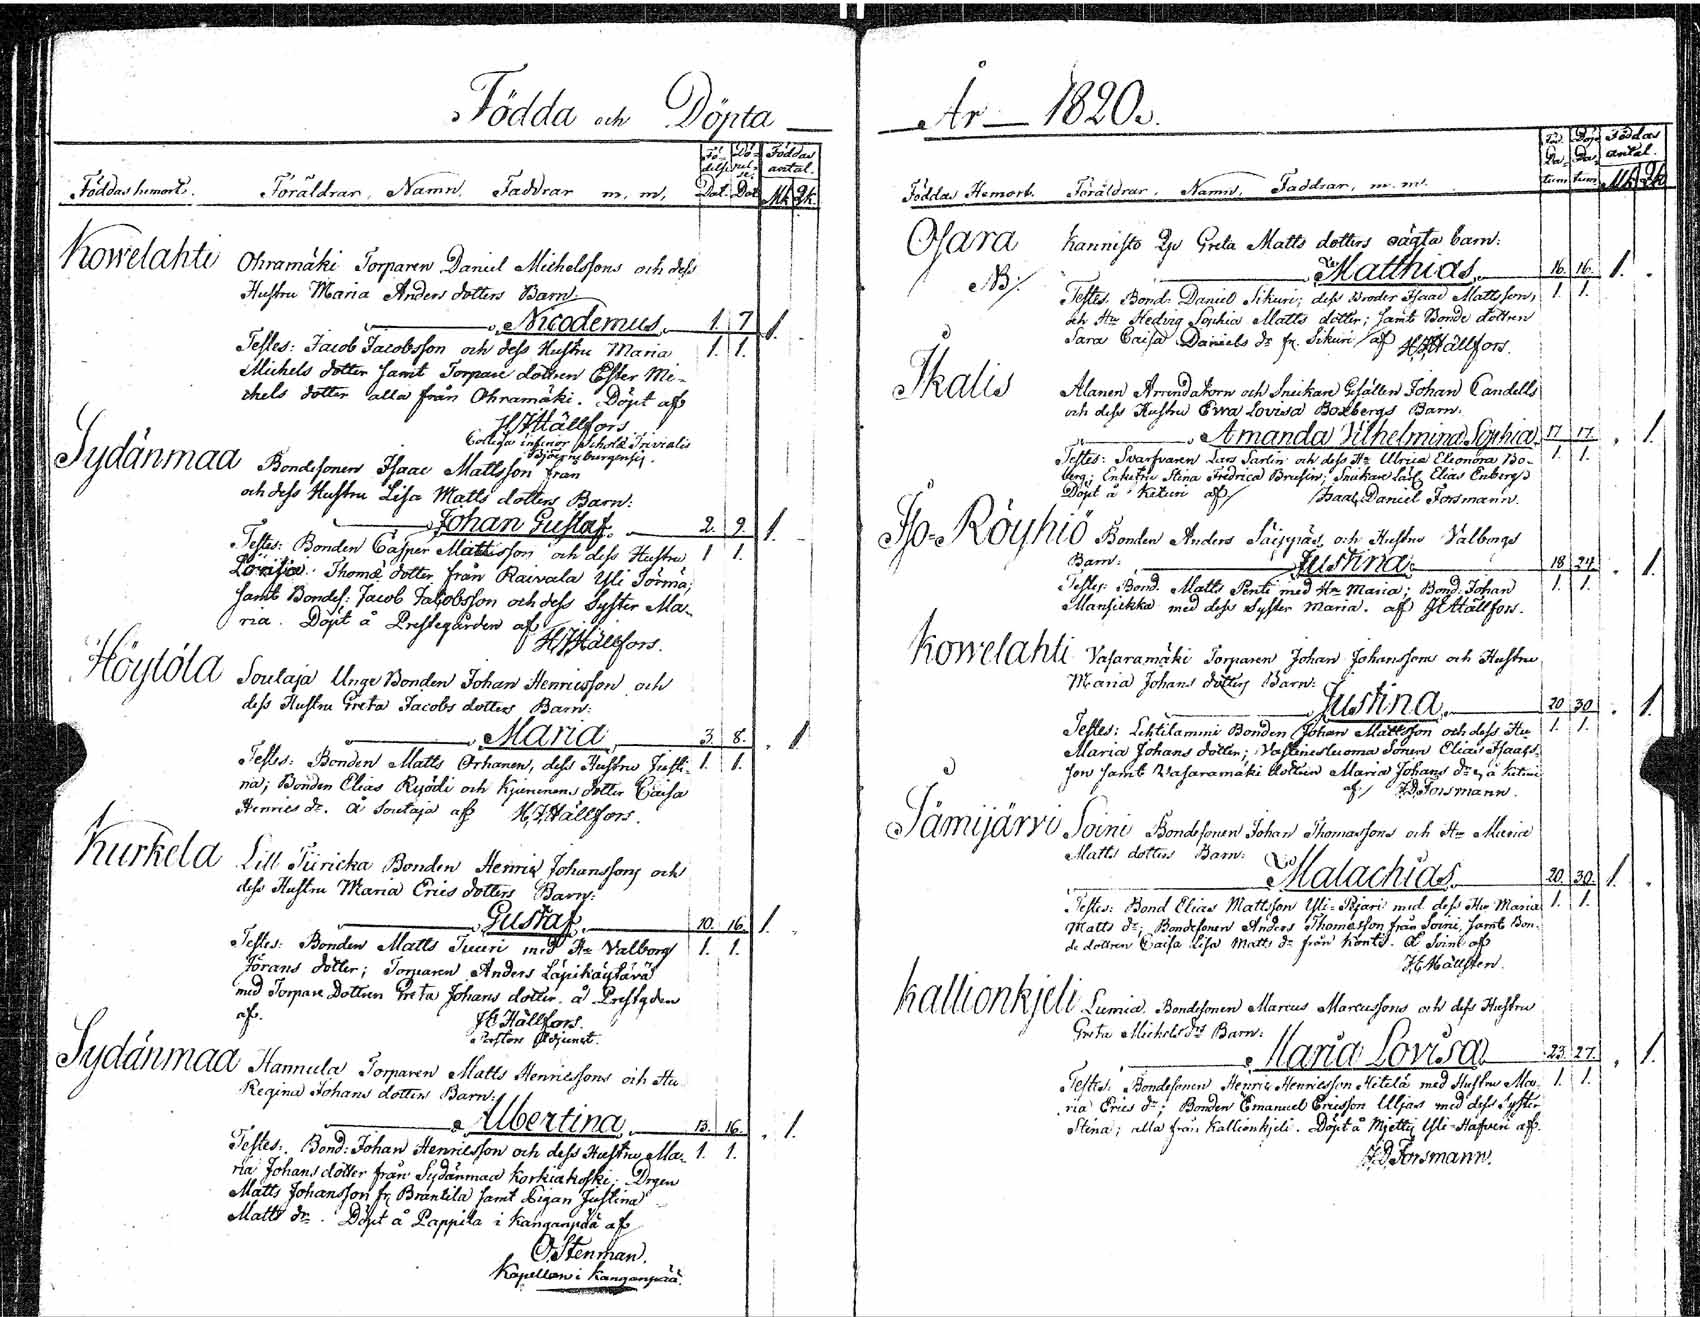 Födda och Döpta
Födelse Dat. Döpelse Dat. Föddas antal.
Föddas hemort. Föräldrar, Namn, Faddrar m, m, Mk. Qk.
Kowelahti Ohramäki Torparen Daniel Michelssons och dess
Hustru Maria Anders dotters Barn
Nicodemus 1. 7 1
Testes: Jacob Jacobsson och dess Hustru Maria 1. 1.
Michels dotter samt Torpare dottren Ester Mi-
chels dotter alla från Ohramäki. Döpt af
H J Hällfors
Collega inferior Scholæ Trivialis
Björneburgensis.
Sydänmaa Bondesonen Isaac Mattsson från
och dess Hustru Lisa Matts dotters Barn:
Johan Gustaf 2. 9. 1.
Testes: Bonden Casper Mattsson och dess Hustru 1 1.
Lovisa Thomæ dotter från Raivala Yli Törmä;
samt Bondes: Jacob Jacobsson och dess Syster Ma-
ria. Döpt å Prestegården af
H J Hällfors.
Höytölä Soulaja Unge Bonden Johan Henricsson och
dess Hustru Greta Jacobs dotters Barn:
Maria 3. 8. 1
Testes: Bonden Matts Orhanen, dess Hustru Justi- 1. 1.
na; Bonden Elias Ryödi och dotter Caisa
Henrics dr. å Soulaja af H. J. Hällfors.
Kurkela Lill Tiiricka Bonden Henric Johanssons och
dess Hustru Maria Erics dotters Barn:
Gustaf 10. 16. 1.
Testes: Bonden Matts Tuuri med Hu Valborg 1. 1.
Jörans dotter; Torparen Anders Läpikäytävä
med Torpare Dottren Greta Johans dotter. å Prestgden
af. J E Hällfors.
Pastors Adjunct.
Sydänmaa Hannula Torparen Matts Henricssons och Hu
Regina Johans dotters Barn:
Albertina 13. 16. 1.
Testes: Bond: Johan Henricsson och dess Hustru Ma- 1. 1.
ria Johans dotter från Sydänmaa Korkiakoski; Drgen
Matts Johansson fr. Brantila samt Pigan Justina
Matts dr. Döpt å Pappila i Kanganpää af
O Stenman.
Kapellan i Kanganpää.
År 1820.
Föd. Datum Döp. Datum Föddas antal.
Föddas Hemort. Föräldrar, Namn, Faddrar, m. m. Mk Qk
Osara Kannisto Qp Greta Matts dotters oägta barn:
NB/. Matthias 16. 16. 1.
Testes. Bond: Daniel Sikuri; dess Broder Isaac Mattsson, 1. 1.
och Hu Hedvig Sophia Matts dotter; samt Bonde dottren
Sara Caisa Daniels dr fr. Sikuri/ af H J Hällfors.
Ikalis Alanen Arrendatorn och Snickare Gesällen Johan Candells
och dess Hustru Ewa Lovisa Boxbergs Barn:
Amanda Vilhelmina Sophia 17 17. 1.
Testes: Svarfvaren Lars Sarlin och dess Hu Ulrica Eleonora Bo- 1. 1.
berg; Enkefru Stina Fredrica Brusin; Snickare Lärl. Elias Enberg.
Döpt å Keturi af/ Isaac Daniel Forsmann.
Iso-Röyhiö Bonden Anders Säippäs och Hustru Valborgs
Barn: Justina 18 24. 1.
Testes: Bond. Matts Penti med Hu Maria; Bond: Johan 1. 1.
Mansickka med dess Syster Maria. af J E Hällfors.
Kowelahti Vasaramäki Torparen Johan Johanssons och Hustru
Maria Johans dotters Barn:
Justina 20 30 1.
Testes: Lehtilammi Bonden Johan Mattsson och dess Hu 1. 1.
Maria Johans dotter; Vastinesluoma Sonen Elias Isaacs-
son samt Vasaramäki dottren Maria Johans dr å Keturi
af/ I. D. Forsmann.
Jämijärvi Soini Bondesonen Johan Thomassons och Hu Maria
Matts dotters Barn:
Malachias 20. 30. 1.
Testes: Bond Elias Mattsson Yli-Pejari med dess Hu Maria 1. 1.
Matts dr; Bondesonen Anders Thomasson från Soini, samt Bon-
de dottren Caisa Lisa Matts dr från Kontti. å Soini af
J. E Hällsten.
Kallionkjeli Lumia Bondesonen Marcus Marcussons och dess Hustru
Greta Michels drs Barn:
Maria Lovisa 23. 27. 1.
Testes: Bondesonen Henric Henricsson Hitilä med Hustru Ma- 1. 1.
ria Erics dr; Bonden Emanuel Ericsson Uljas med dess Syster
Stina; alla från Kallionkjeli. Döpt å Mjetty Yli-Hafveri af.
I. D Forsmann.